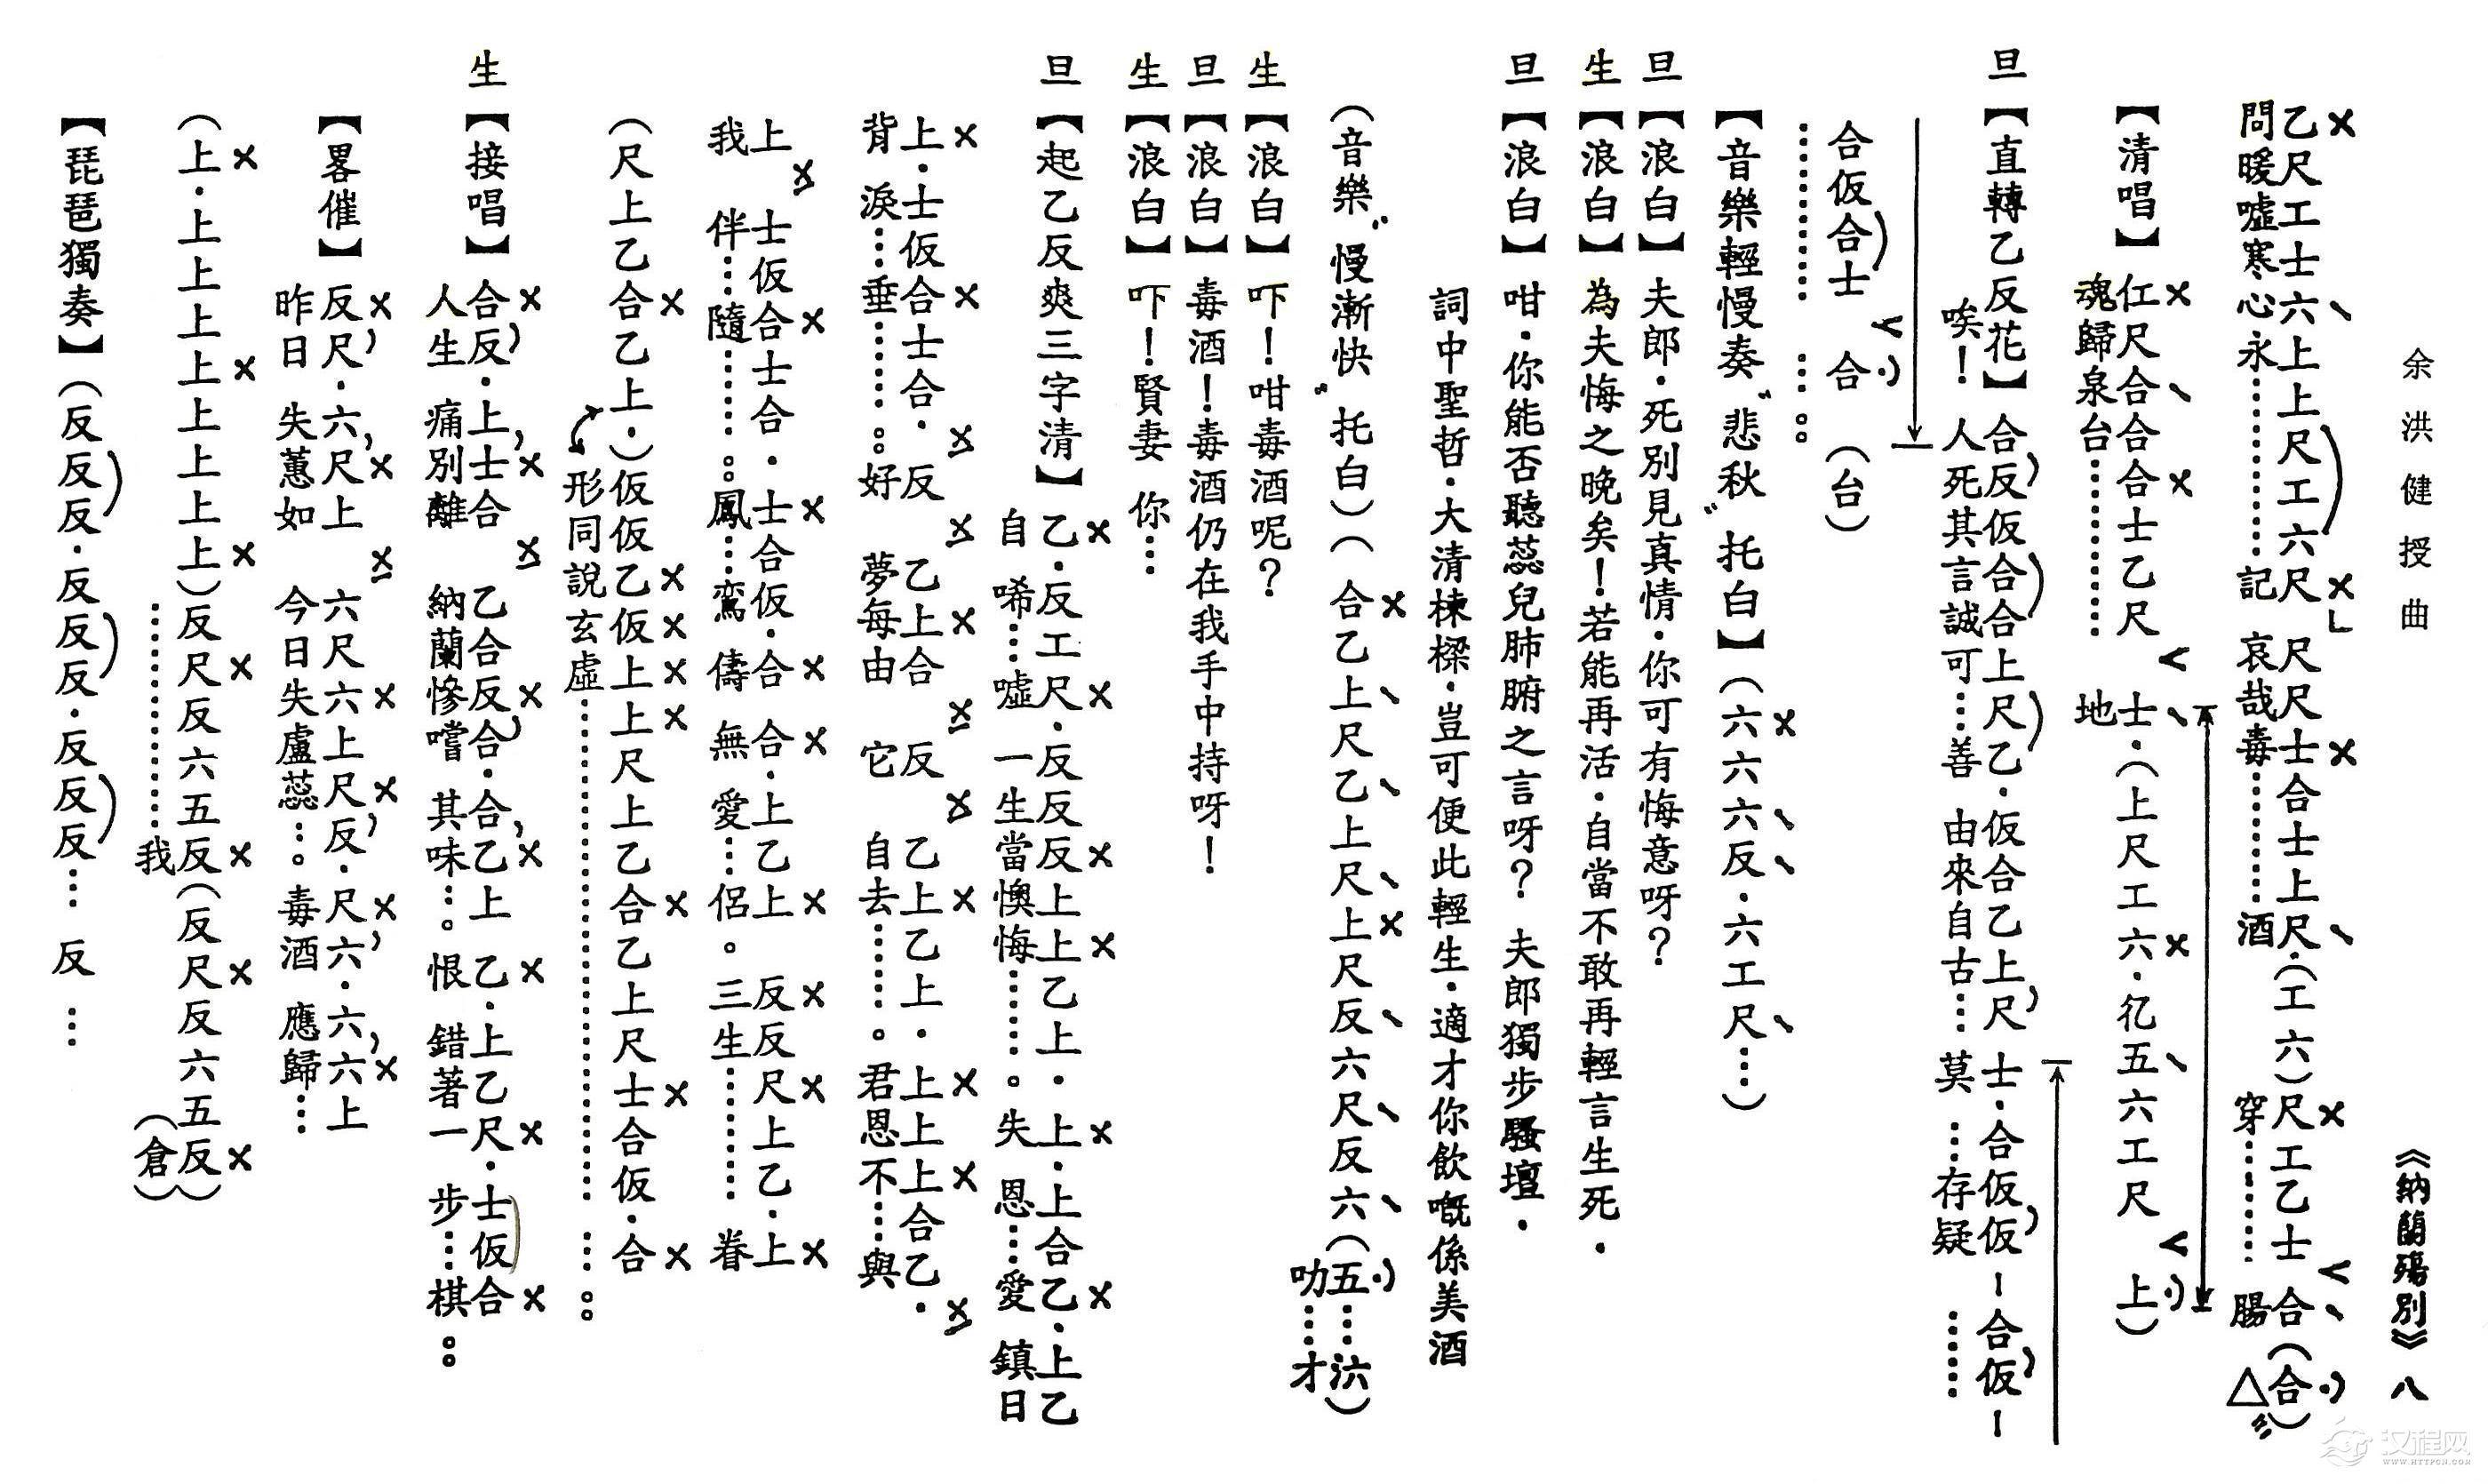 余洪健授曲 《納蘭殤別》八
乙尺工士六上上尺工六尺 尺尺士合士上尺·(工六)尺工乙士 合(合)
問暖噓寒心永………記 哀哉毒………酒 穿………腸△
【清唱】仜尺合合合士乙尺 士·(上尺工六·亿五六工尺 上)
魂歸泉台……… 地
旦【直轉乙反花】合反仮合合上尺乙·仮合乙上尺 士·合仮仮—合仮—
唉!人死其言誠可…善 由來自古… 莫…存疑………
合仮合士 合 (台)
………………。
【音樂輕慢奏"悲秋"托白】(六六六反·六工尺…)
旦【浪白】夫郎·死別見真情·你可有悔意呀?
生【浪白】為夫悔之晚矣!若能再活·自當不敢再輕言生死·
旦【浪白】咁·你能否聽蕊兒肺腑之言呀? 夫郎獨步騷壇·
詞中聖哲·大清棟樑·豈可便此輕生·適才你飲嘅係美酒
(音樂"慢漸快"托白)(合乙上尺乙上尺上尺反六尺反六(五…六)
叻…才
生【浪白】吓!咁毒酒呢?
旦【浪白】毒酒!毒酒仍在我手中持呀!
生【浪白】吓!賢妻 你…
旦【起乙反爽三字清】乙·反工尺·反反反上上乙上· 上·上合乙·上乙
自 唏…噓 一生當懊悔………。失 恩…愛 鎮日
上·士仮合士合· 反 乙上合 反 乙上乙上·上上上合乙·
背 淚…垂………。好 夢每由 它 自去………。君恩不…與
上 士仮合士合·士合仮·合 合·上乙上 反反尺上乙·上
我 伴…隨………。鳳…鸞 儔 無 愛…侶。三生………眷
(尺上乙合乙上·)仮仮乙仮上上尺上乙合乙上尺士合仮·合
形同說玄虛………………。
生【接唱】合反·上士合 乙合反合·合乙上 乙·上乙尺·士仮合
人生 痛別離 納蘭慘嚐 其味…。恨 錯著一 步…棋。。
【畧催】反尺·六尺上 六尺六上尺反·尺六·六六上
昨日 失蕙如 今日失盧蕊…。毒酒 應歸…
(上·上上上上上上上上)反尺反六五反(反尺反六五反)
…………我 (倉)
【琵琶獨奏】(反反反·反反反·反反反… 反 …
汉程网
WWW.HTTPCN.COM